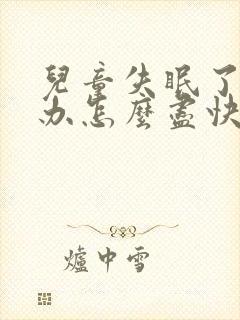 兒童失眠了
办怎麼盡快
爐中雪